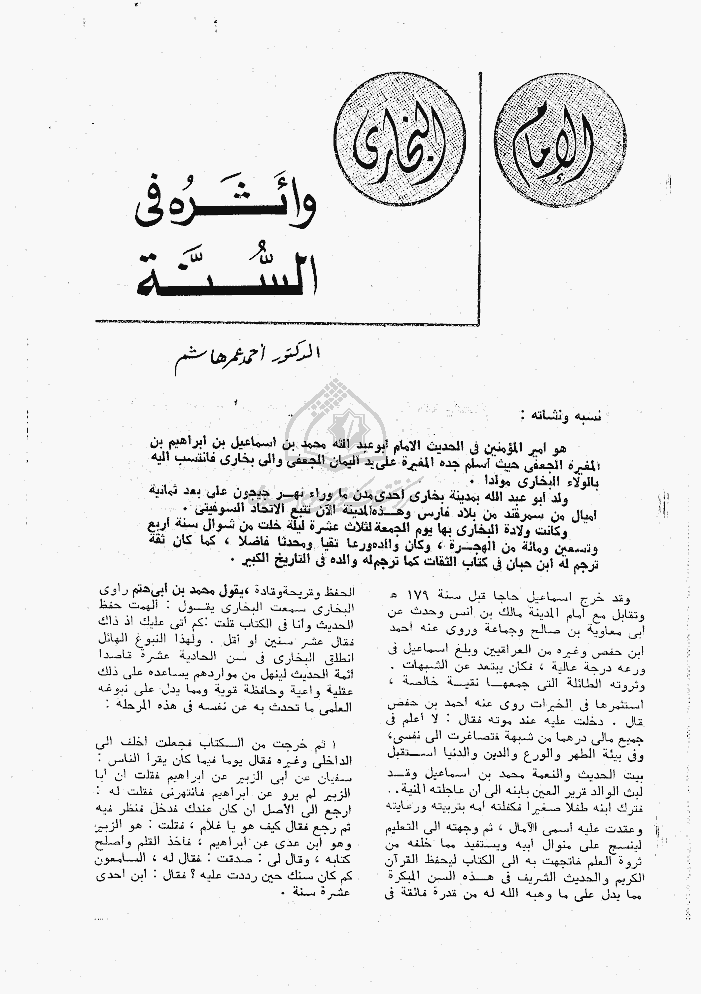 الإمام
البخارى
وأثره فى
السنة
الدكتور أحمد عمر هاشم
نسبه ونشاته :
هو امير المؤمنين فى الحديث الامام أبو عبد الله محمد بن اسماعيل بن ابراهيم بن
المغيرة الجعفى حيث أسلم جده المغيرة على يد اليمان الجعفى والى بخارى فانتسب اليه
بالولاء البخارى مولدا .
ولد ابو عبد الله بمدينة بخارى احدى مدن ما وراء نهر جيحون على بعد ثمانية
اميال من سمرقند من بلاد فارس وهذه المدينة الآن تتبع الاتحاد السوفيتى .
وكانت ولادة البخارى بها يوم الجمعة لثلاث عشرة ليلة خلت من شوال سنة أربع
وتسعين ومائة من الهجرة ، وكان والده ورعا تقيا ومحدثا فاضلا ، كما كان ثقة
ترجم له ابن حبان فى كتاب الثقات كما ترجم له والده فى التاريخ الكبير .
وقد خرج اسماعيل حاجا قبل سنة ١٧٩ هـ
وتقابل مع امام المدينة مالك بن انس وحدث عن
أبى معاوية بن صالح وجماعة وروى عنه احمد
ابن حفص وغيره من العراقيين وبلغ اسماعيل فى
ورعه درجة عالية ، فكان يبتعد عن الشبهات .
وثروته الطائلة التى جمعها نقية خالصة ،
استثمرها فى الخيرات روى عنه احمد بن حفص
قال . دخلت عليه عند موته فقال : لا أعلم فى
جميع مالى درهما من شبهة فتصاغرت الى نفسى،
وفى بيئة الطهر والورع والدين والدنيا استقبل
بيت الحديث والنعمة محمد بن اسماعيل وقد
لبث الوالد قرير العين بابنه الى أن عاجلته المنية ..
فترك ابنه طفلا صغيرا فكفلته امه بتربيته ورعايته
وعقدت عليه أسمى الآمال ، ثم وجهته الى التعليم
لينسج على منوال أبيه ويستفيد مما خلفه من
ثروة العلم فاتجهت به الى الكتاب ليحفظ القرآن
الكريم والحديث الشريف فى هذه السن المبكرة
مما يدل على ما وهبه الله له من قدرة فائقة فى
الحفظ وقريحة وقادة ، يقول محمد بن أبى حتم راوى
البخارى سمعت البخارى يقول : ألهمت حفظ
الحديث وأنا فى الكتاب قلت : كم أتى عليك اذ ذاك
فقال عشر سنين او أقل . ولهذا النبوغ الهائل
انطلق البخارى فى سن الحادية عشرة قاصدا
أئمة الحديث لينهل من مواردهم يساعده على ذلك
عقلية واعية وحافظة قوية ومما يدل على نبوغه
العلمى ما تحدث به عن نفسه فى هذه المرحلة :
( ثم خرجت من الكتاب فجعلت أختلف الى
الداخلى وغيره فقال يوما فيما كان يقرأ الناس :
سفيان عن أبى الزبير عن ابراهيم فقلت ان ابا
الزبير لم يرو عن ابراهيم فانتهرنى فقلت له :
ارجع الى الأصل ان كان عندك فدخل فنظر فيه
ثم رجع فقال كيف هو يا غلام ، فقلت : هو الزبير
وهو ابن عدى عن ابراهيم ، فأخذ القلم وأصلح
كتابه ، وقال لى : صدقت : فقال له ، السامعون
كم كان سنك حين رددت عليه ؟ فقال : ابن احدى
عشرة سنة .